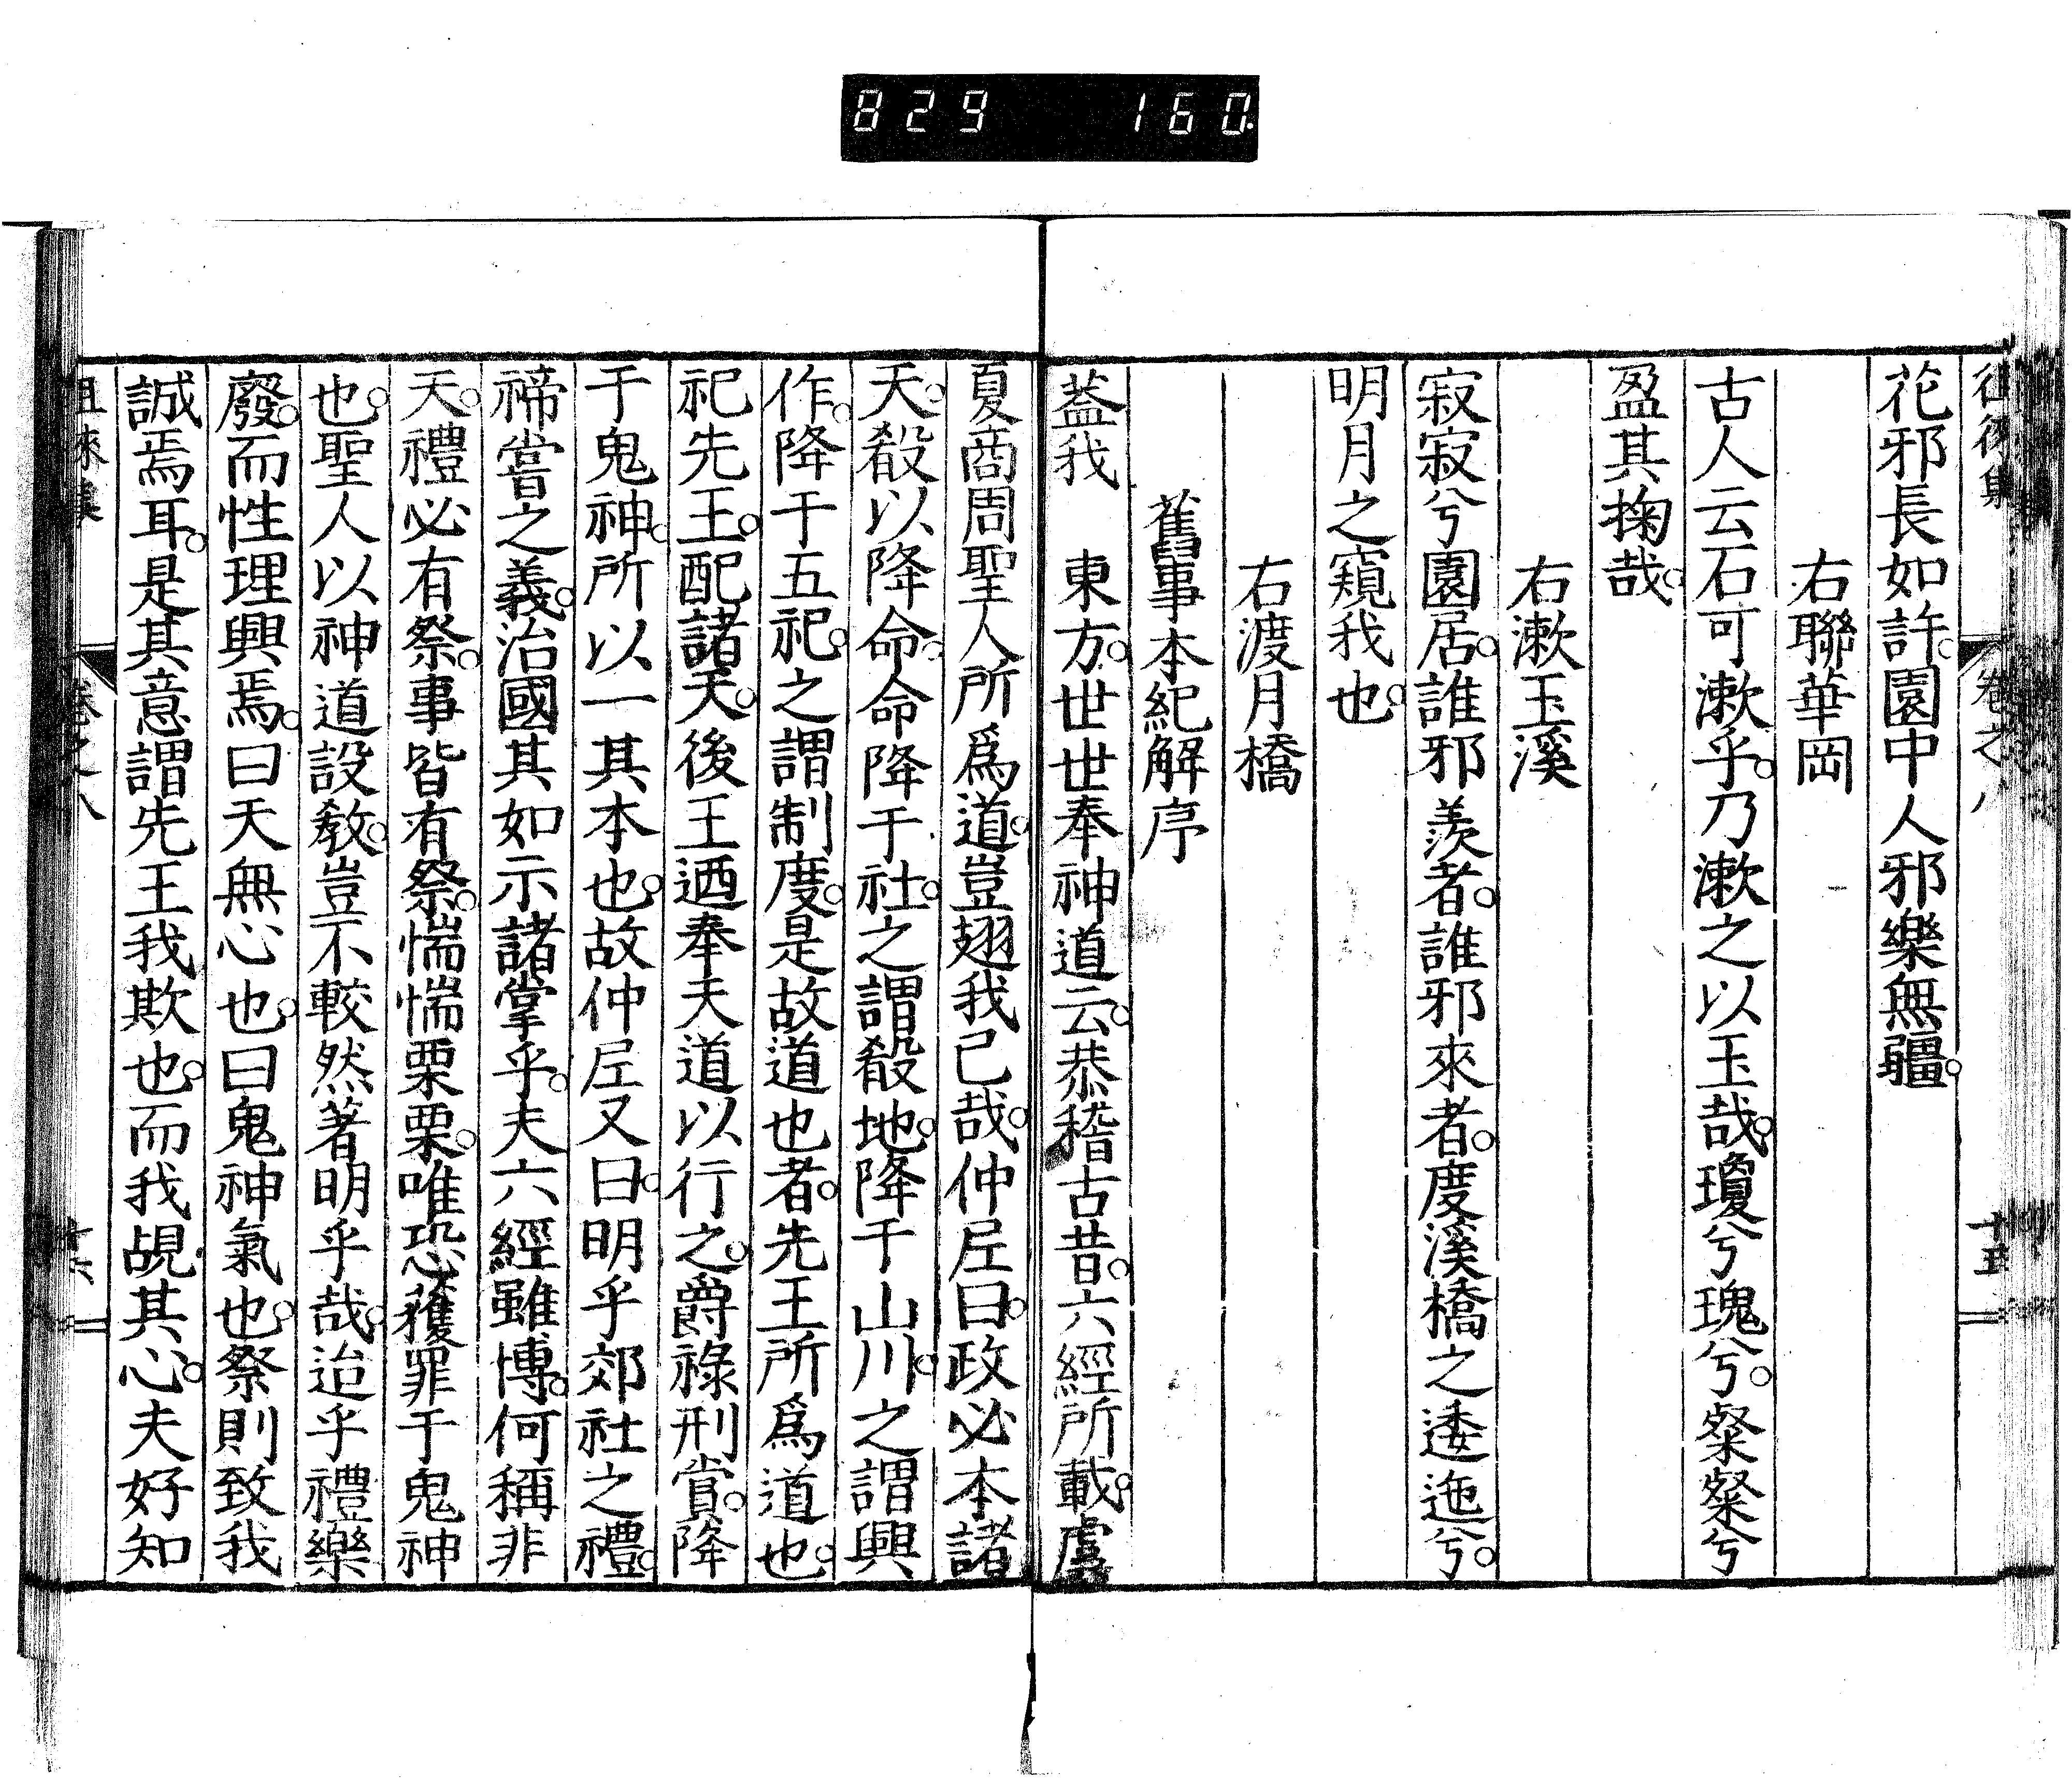 829 160.
徂徠集 卷之八 十五
花邪長如許。園中人邪樂無疆。
右聯華岡
古人云石可漱乎。乃漱之以玉哉。瓊兮瑰兮。粲粲兮
盈其掬哉。
右漱玉溪
寂寂兮園居。誰邪羨者。誰邪來者。度溪橋之逶迤兮。
明月之窺我也。
右渡月橋
舊事本紀解序
蓋我 東方。世世奉神道云。恭稽古昔。六經所載。虞
夏商周聖人所爲道。豈翅我已哉。仲尼曰。政必本諸
天。殽以降命。命降于社。之謂殽地。降于山川。之謂興
作。降于五祀。之謂制度。是故道也者。先王所爲道也。
祀先王。配諸天。後王迺奉天道以行之。爵祿刑賞。降
于鬼神。所以一其本也。故仲尼又曰。明乎郊社之禮。
禘嘗之義。治國其如示諸掌乎。夫六經雖博。何稱非
天。禮必有祭。事皆有祭。惴惴栗栗。唯恐獲罪于鬼神
也。聖人以神道設敎。豈不較然著明乎哉。迨乎禮樂
廢。而性理興焉。曰天無心也。曰鬼神氣也。祭則致我
誠焉耳。是其意謂先王我欺也。而我覘其心。夫好知
徂徠集 卷之八 十六